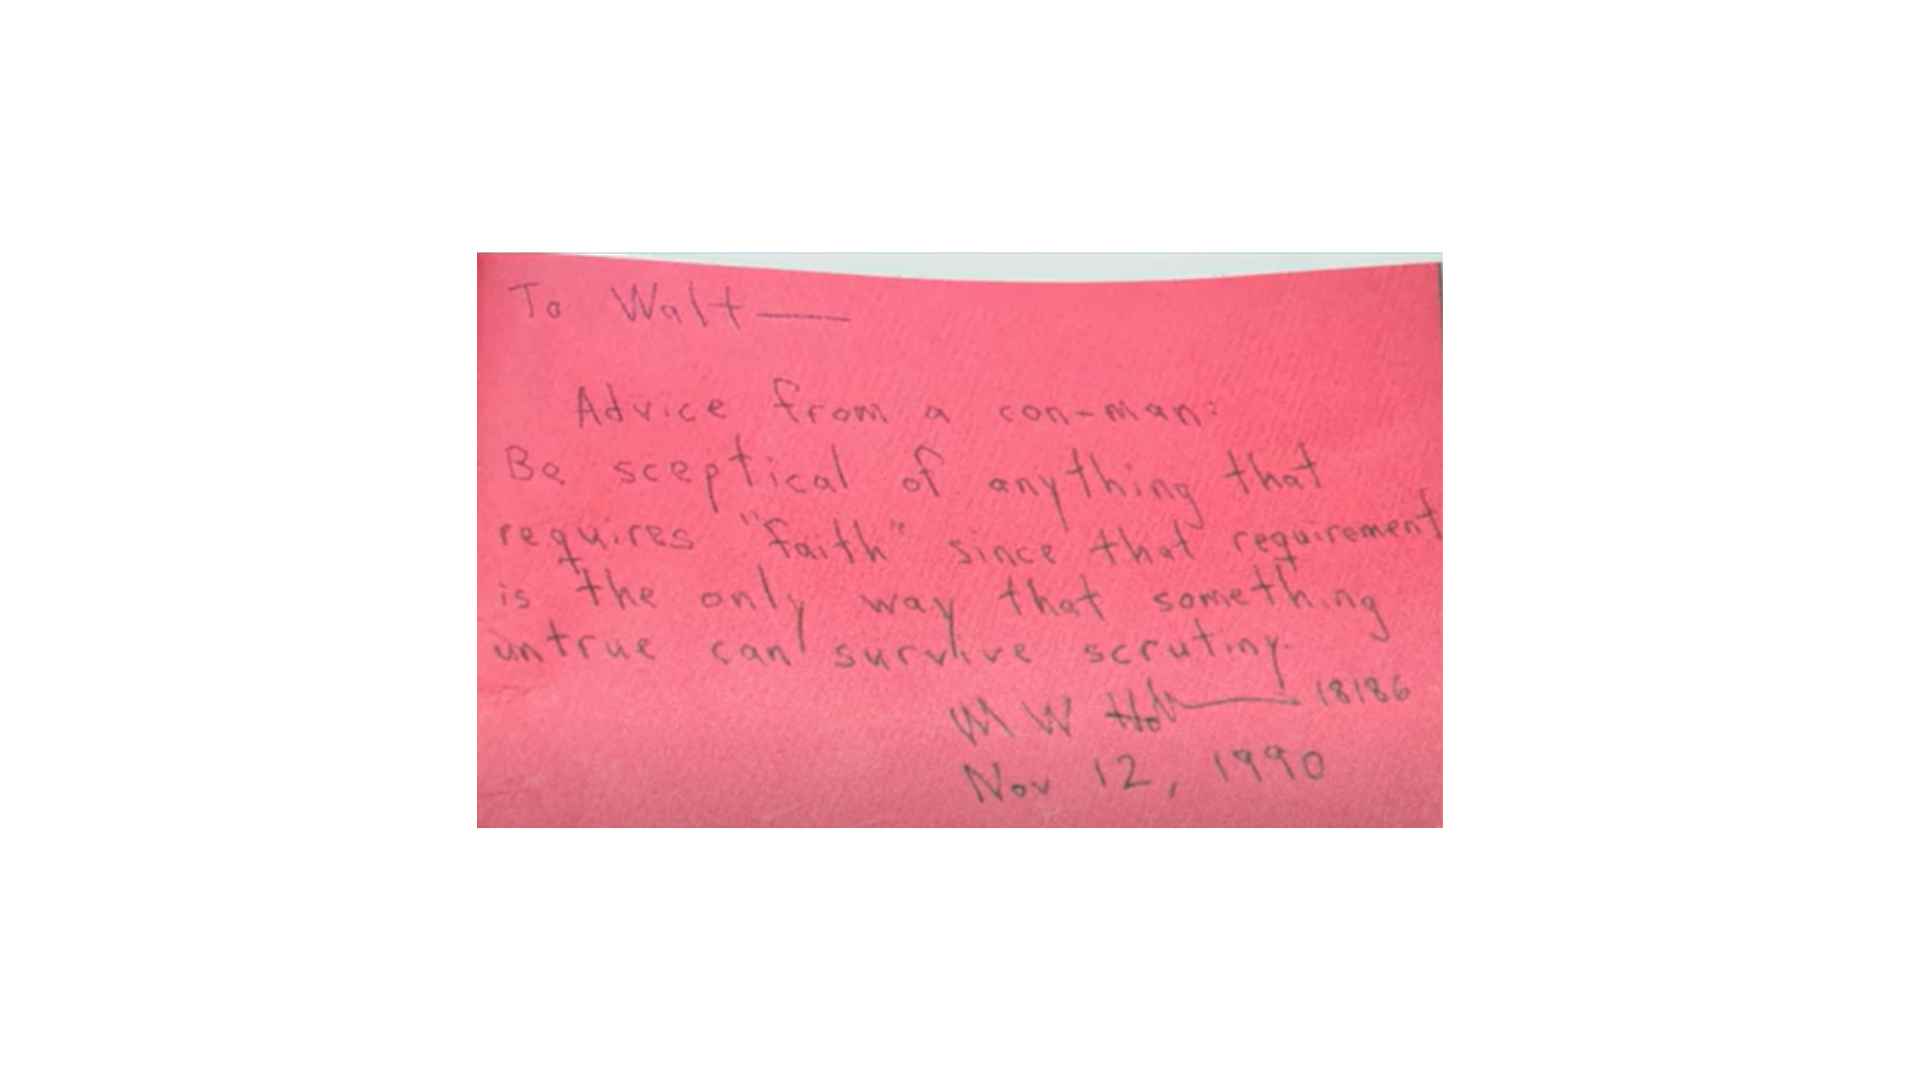 To Walt—
Advice from a con-man:
Be sceptical of anything that
requires "faith" since that requirement
is the only way that something
untrue can survive scrutiny.
M W 18186
Nov 12, 1990